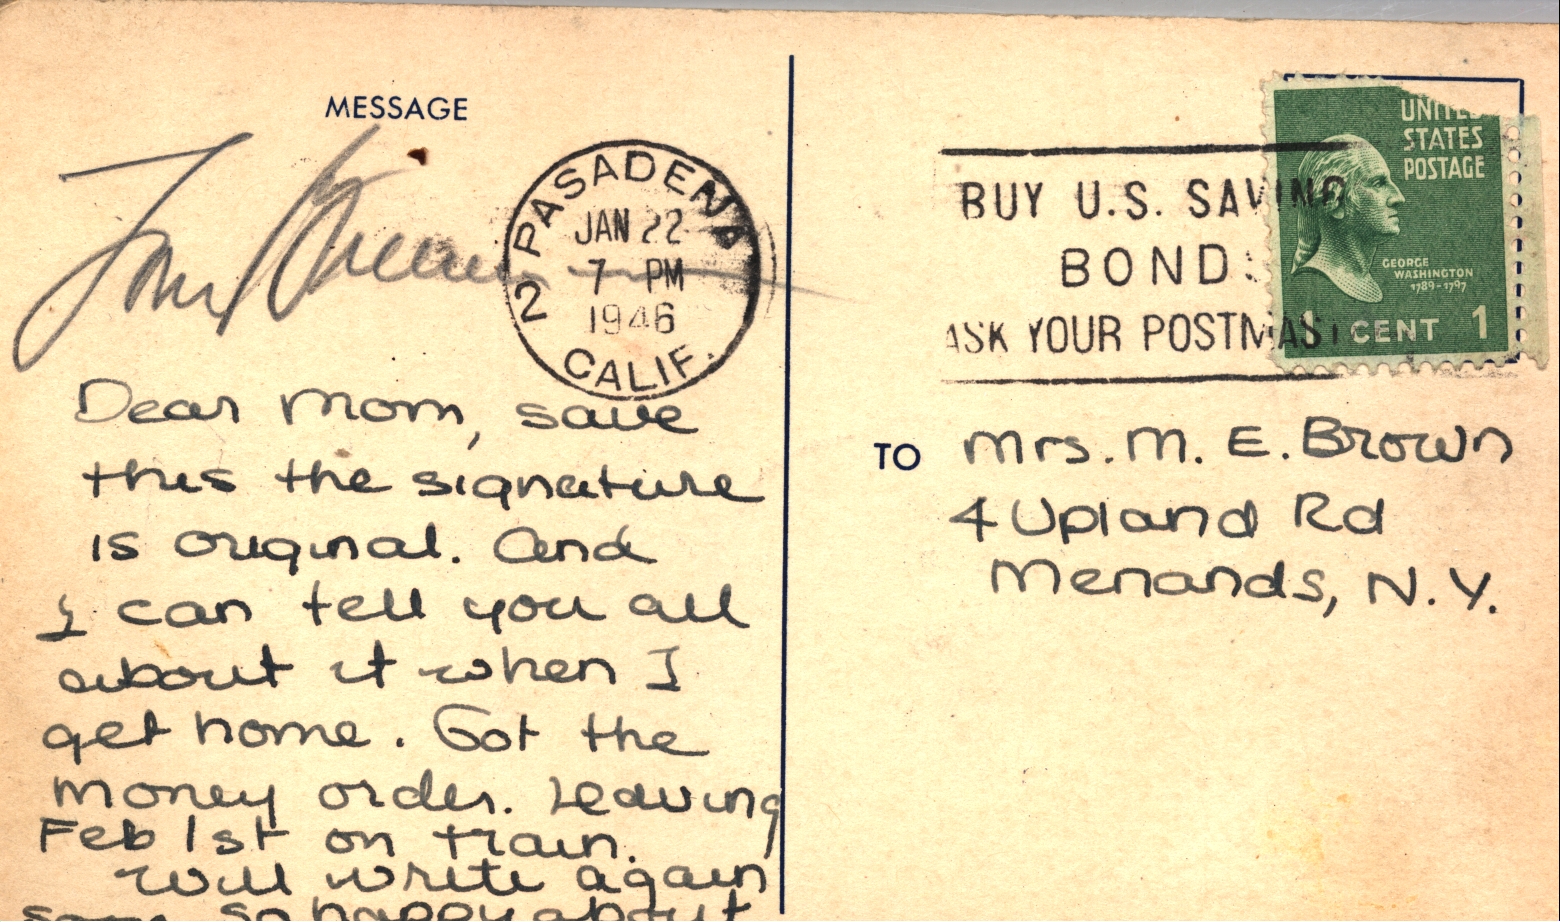 MESSAGE
Tom Breneman
PASADENA 2
JAN 22
7 PM
1946
CALIF.
Dear Mom, save
this the signature
is original. And
I can tell you all
about it when I
get home. Got the
money order. Leaving
Feb 1st on train.
Will write again
soon. So happy about
BUY U.S. SAVING
BOND
ASK YOUR POSTMAST
UNITED
STATES
POSTAGE
GEORGE
WASHINGTON
1789-1797
1 CENT 1
TO Mrs. M. E. Brown
4 Upland Rd
Menands, N.Y.